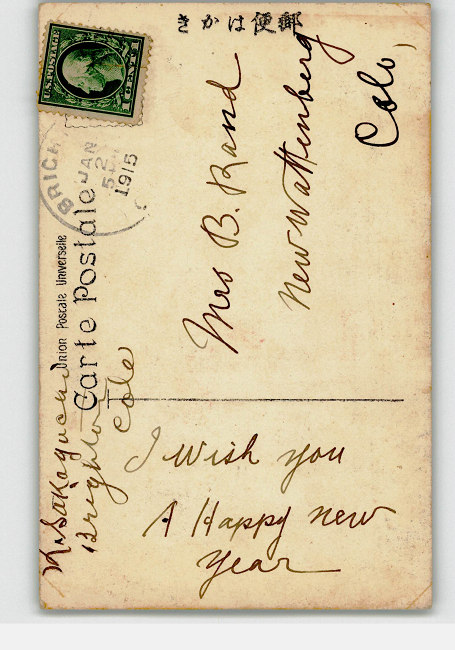 きかは便郵
U.S. POSTAGE
1 CENT 1
JAN
2
1915
Union Postale Universelle
Carte Postale
Mrs B. Rand
New Wattenberg
Colo,
K. Sakaguchi
Brighton
Colo
I Wish you
A Happy new
year